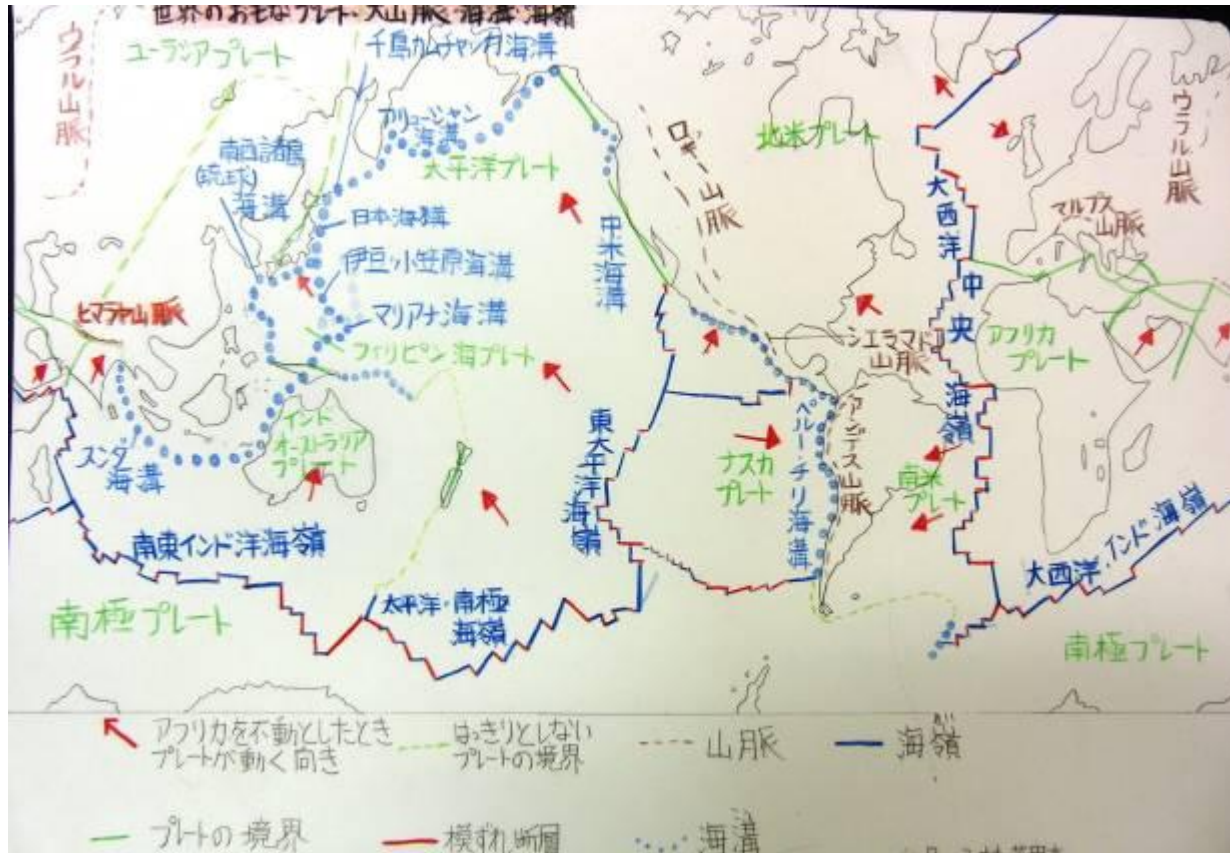 世界のおもなプレート・大山脈・海溝・海嶺
ウラル山脈
ユーラシアプレート
千島カムチャッカ海溝
アリューシャン
海溝
南西諸島
(琉球)
海溝
太平洋プレート
日本海溝
伊豆小笠原海溝
マリアナ海溝
フィリピン海プレート
ヒマラヤ山脈
スンダ
海溝
インド
オーストラリア
プレート
南東インド洋海嶺
南極プレート
太平洋・南極
海嶺
東太平洋海嶺
中米海溝
ロッキー山脈
北米プレート
シエラマドレ
山脈
ナスカ
プレート
ペルー・チリ海溝
アンデス山脈
南米
プレート
大西洋中央海嶺
アフリカ
プレート
マルプス
山脈
ウラル山脈
大西洋・インド海嶺
南極プレート
アフリカを不動としたとき
プレートが動く向き
はっきりとしない
プレートの境界
山脈
海嶺
プレートの境界
横ずれ断層
海溝